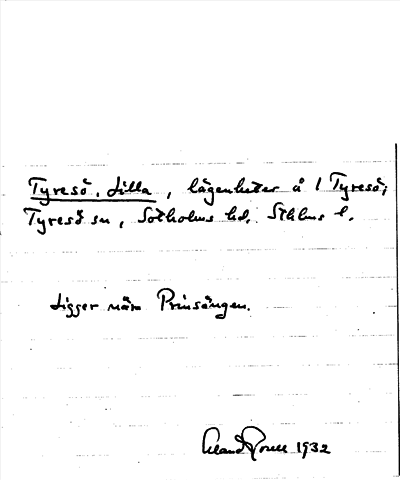 Tyresö, Lilla, lägenheter å 1 Tyresö;
Tyresö sn, Sotholms hd, Sthlms l.
Ligger nära Prinsängen.
1932